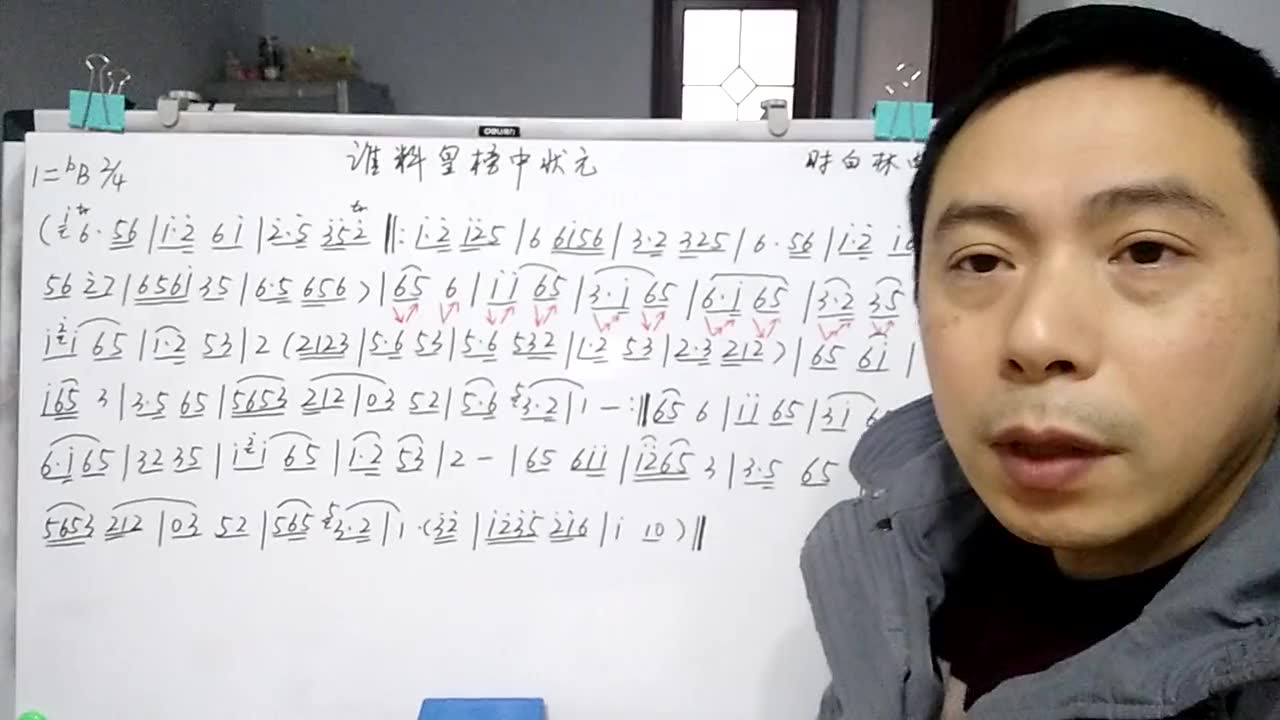 deli得力
谁料皇榜中状元
1=ᵇB 2/4 时白林曲
(i/2 tr 6· 56 | i·2̇ 6i | 2̇·5̇ 3̇5̇2̇ tr ‖: i·2̇ i2̇5 | 6 6i56 | 3·2 325 | 6·56 | i·2̇ i6
56 2̇2 | 656i 35 | 6·5 656 ) | 65 6 | ii 65 | 3·i 65 | 6·i 65 | 3·2 35
i2̇i 65 | i·2 53 | 2 (2123 | 5·6 53 | 5·6 532 | 1·2 53 | 2·3 212 ) | 65 6i |
i65 3 | 3·5 65 | 5653 212 | 03 52 | 5·6 5 3·2 | 1 — :‖ 65 6 | ii 65 | 3i 6
6·i 65 | 32 35 | i2̇i 65 | 1·2 53 | 2 — | 65 6ii | i2̇65 3 | 3·5 65
5653 212 | 03 52 | 565 5 3·2 | 1·(3̇2̇ | i2̇3̇5̇ 2̇i6 | i 10 ) ‖